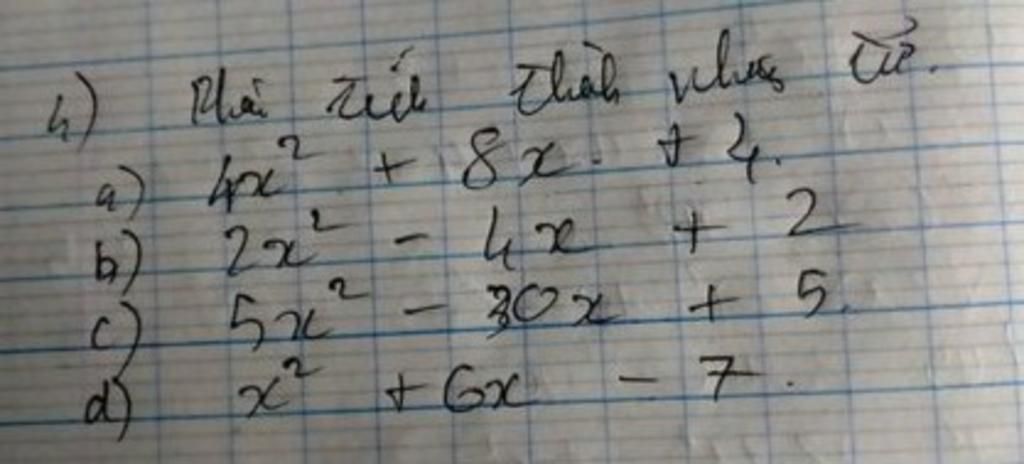 4) Phân tích thành nhân tử.
a) 4x² + 8x + 4.
b) 2x² - 4x + 2
c) 5x² - 30x + 5.
d) x² + 6x - 7.